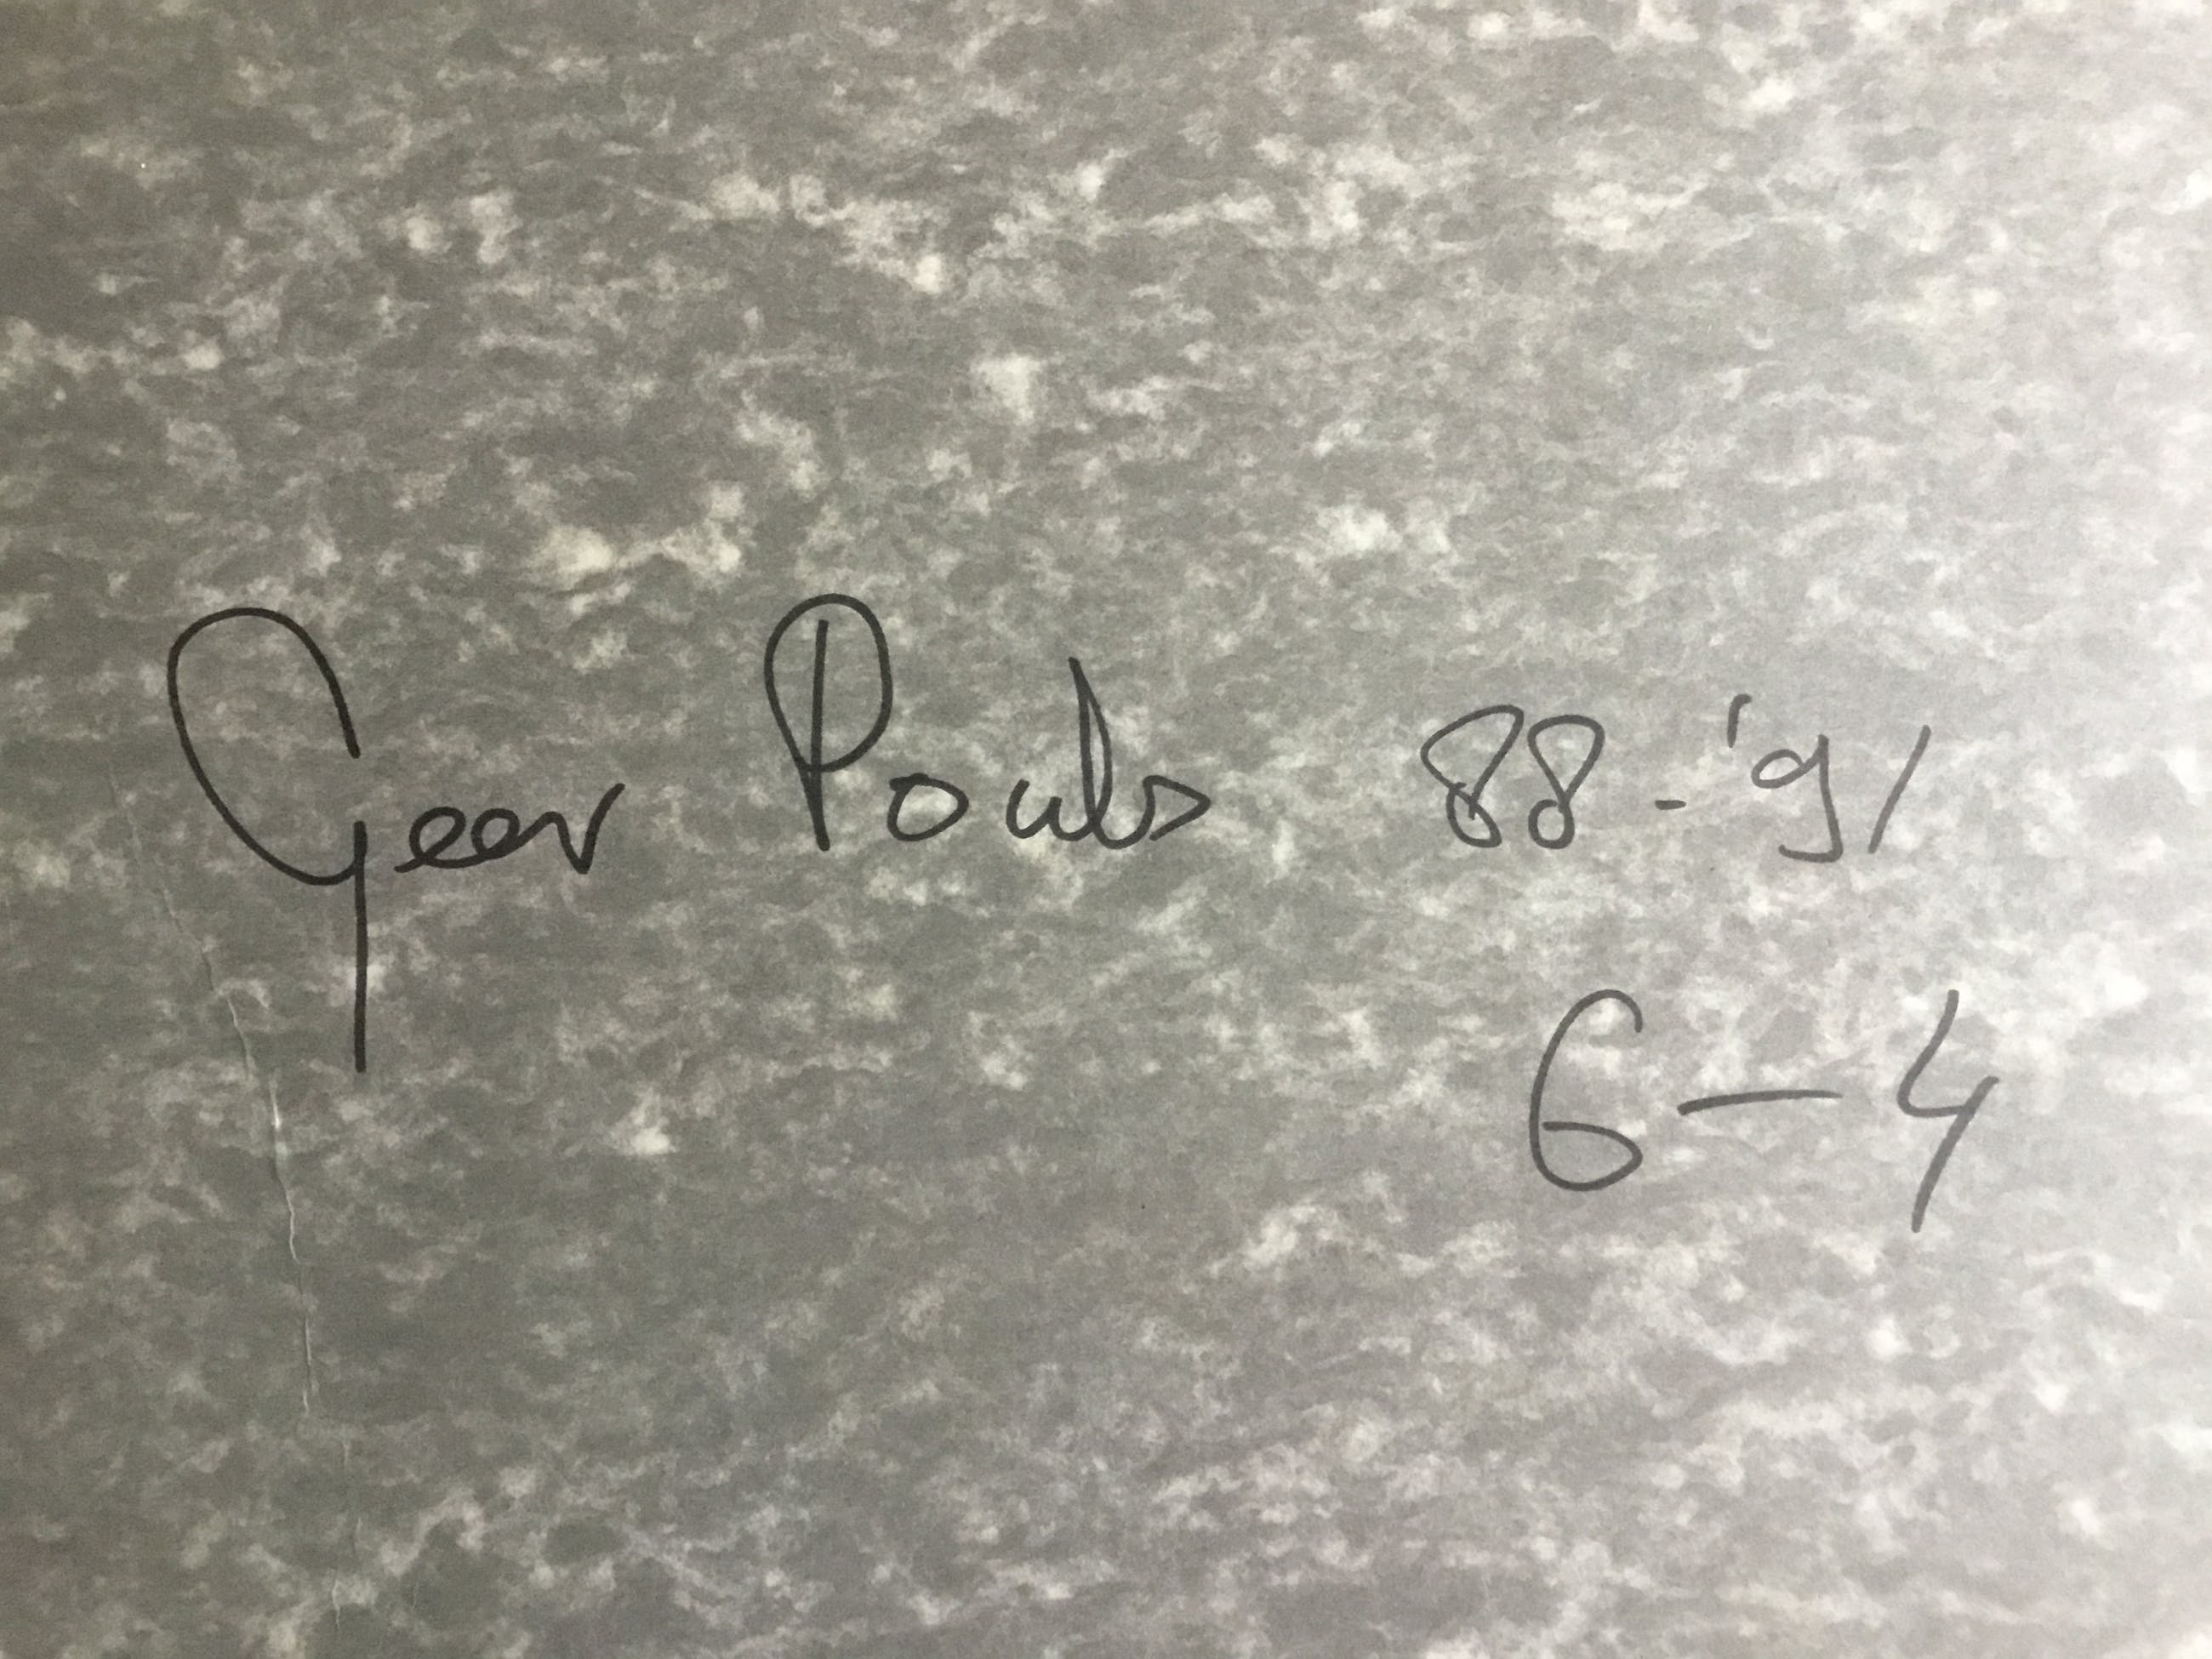 Geer Pouls 88-'91
6-4